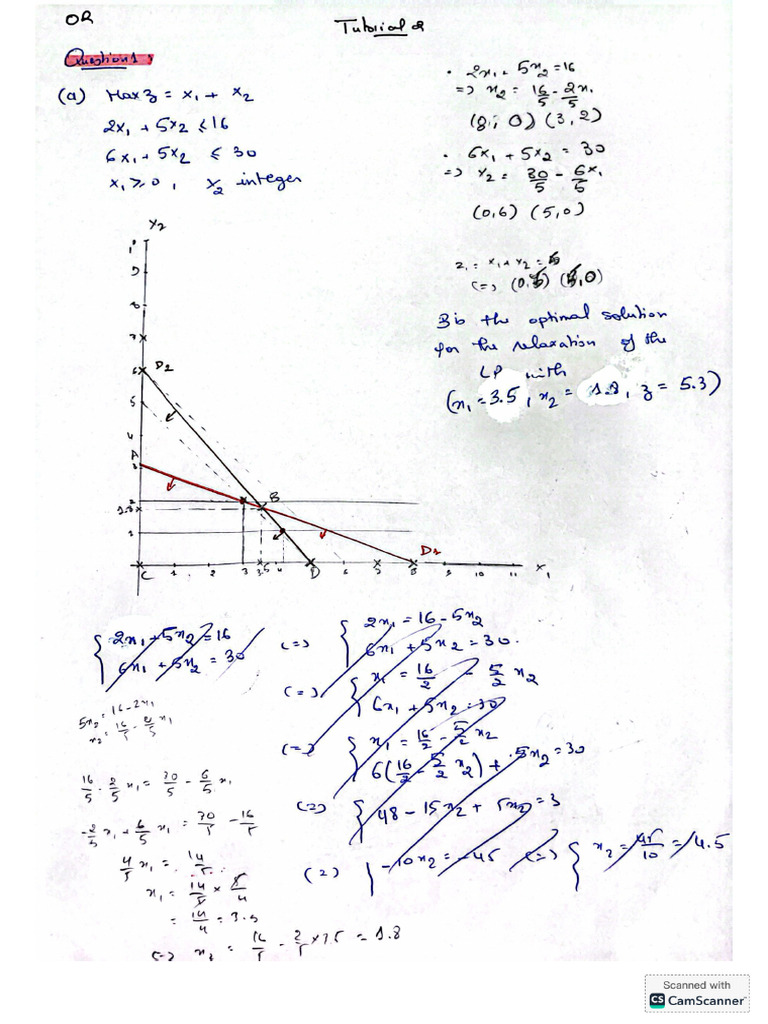 OR
Tutorial 2
Question 1:
(a) Max z = x₁ + x₂
2x₁ + 5x₂ ≤ 16
6x₁ + 5x₂ ≤ 30
x₁ ≥ 0, x₂ integer
• 2x₁ + 5x₂ = 16
=> x₂ = 16/5 - 2x₁/5
(8, 0) (3, 2)
• 6x₁ + 5x₂ = 30
=> x₂ = 30/5 - 6/5 x₁
(0,6) (5,0)
z₁ = x₁ + x₂ = 5
(=) (0,5) (5,0)
B is the optimal solution
for the relaxation of the
LP with
(x₁ = 3.5, x₂ = 1.8, z = 5.3)
x₂
10
9
8
7
6 D2
5
4
A
3
2 B
1.8
1
D1
C 1 2 3 3.5 4 D 6 7 8 9 10 11 x₁
{ 2x₁ + 5x₂ = 16
6x₁ + 5x₂ = 30
(=) { 2x₁ = 16 - 5x₂
6x₁ + 5x₂ = 30.
(=) { x₁ = 16/2 - 5/2 x₂
6x₁ + 5x₂ = 30
(=) { x₁ = 16/2 - 5/2 x₂
6(16/2 - 5/2 x₂) + 5x₂ = 30
(=) { 48 - 15x₂ + 5x₂ = 3
(=) { -10x₂ = -45 (=) { x₂ = 45/10 = 4.5
5x₂ = 16 - 2x₁
x₂ = 16/5 - 2/5 x₁
16/5 - 2/5 x₁ = 30/5 - 6/5 x₁
-2/5 x₁ + 6/5 x₁ = 30/5 - 16/5
4/5 x₁ = 14/5
x₁ = 14/5 × 5/4
= 14/4 = 3.5
(=) x₂ = 16/5 - 2/5 × 3.5 = 1.8
Scanned with
CS CamScanner